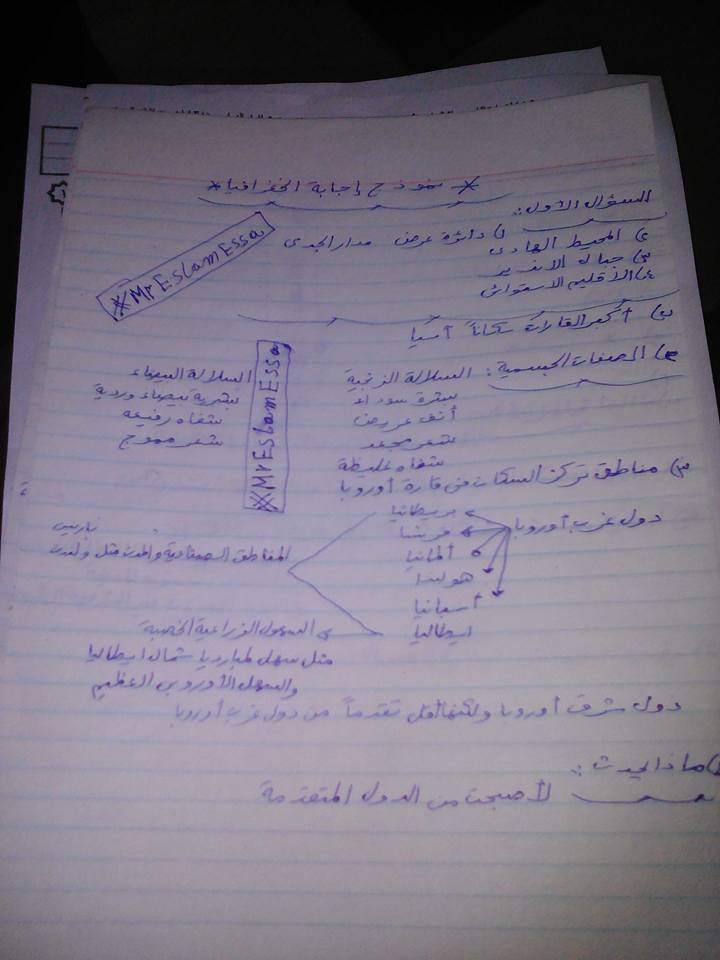 * نموذج إجابة الجغرافيا *
السؤال الأول:
١) دائرة عرض مدار الجدى
٢) المحيط الهادى
٣) جبال الانديز
٤) الأقليم الاستوائى
*MrEslamEssa
٢) أكبر القارات سكاناً أسيا
٢) الصفات الجسمية: السلالة الزنجية السلالة البيضاء
بشرة سوداء بشرية بيضاء وردية
أنف عريض شفاه رفيعه
شعر مجعد شعر مموج
شفاه غليظة
*MrEslamEssa
٣) مناطق تركز السكان فى قارة أوروبا
دول غرب أوروبا بريطانيا
فرنسا
ألمانيا
هولندا
أسبانيا
ايطاليا
المناطق الصناعية والمدن مثل لندن باريس
السهول الزراعية الخصبة
مثل سهل لمبارديا شمال ايطاليا
والسهل الأوروبى العظيم
دول شرق أوروبا ولكنها أقل تقدماً من دول غرب أوروبا
ماذا يحدث:
لأصبحت من الدول المتقدمة